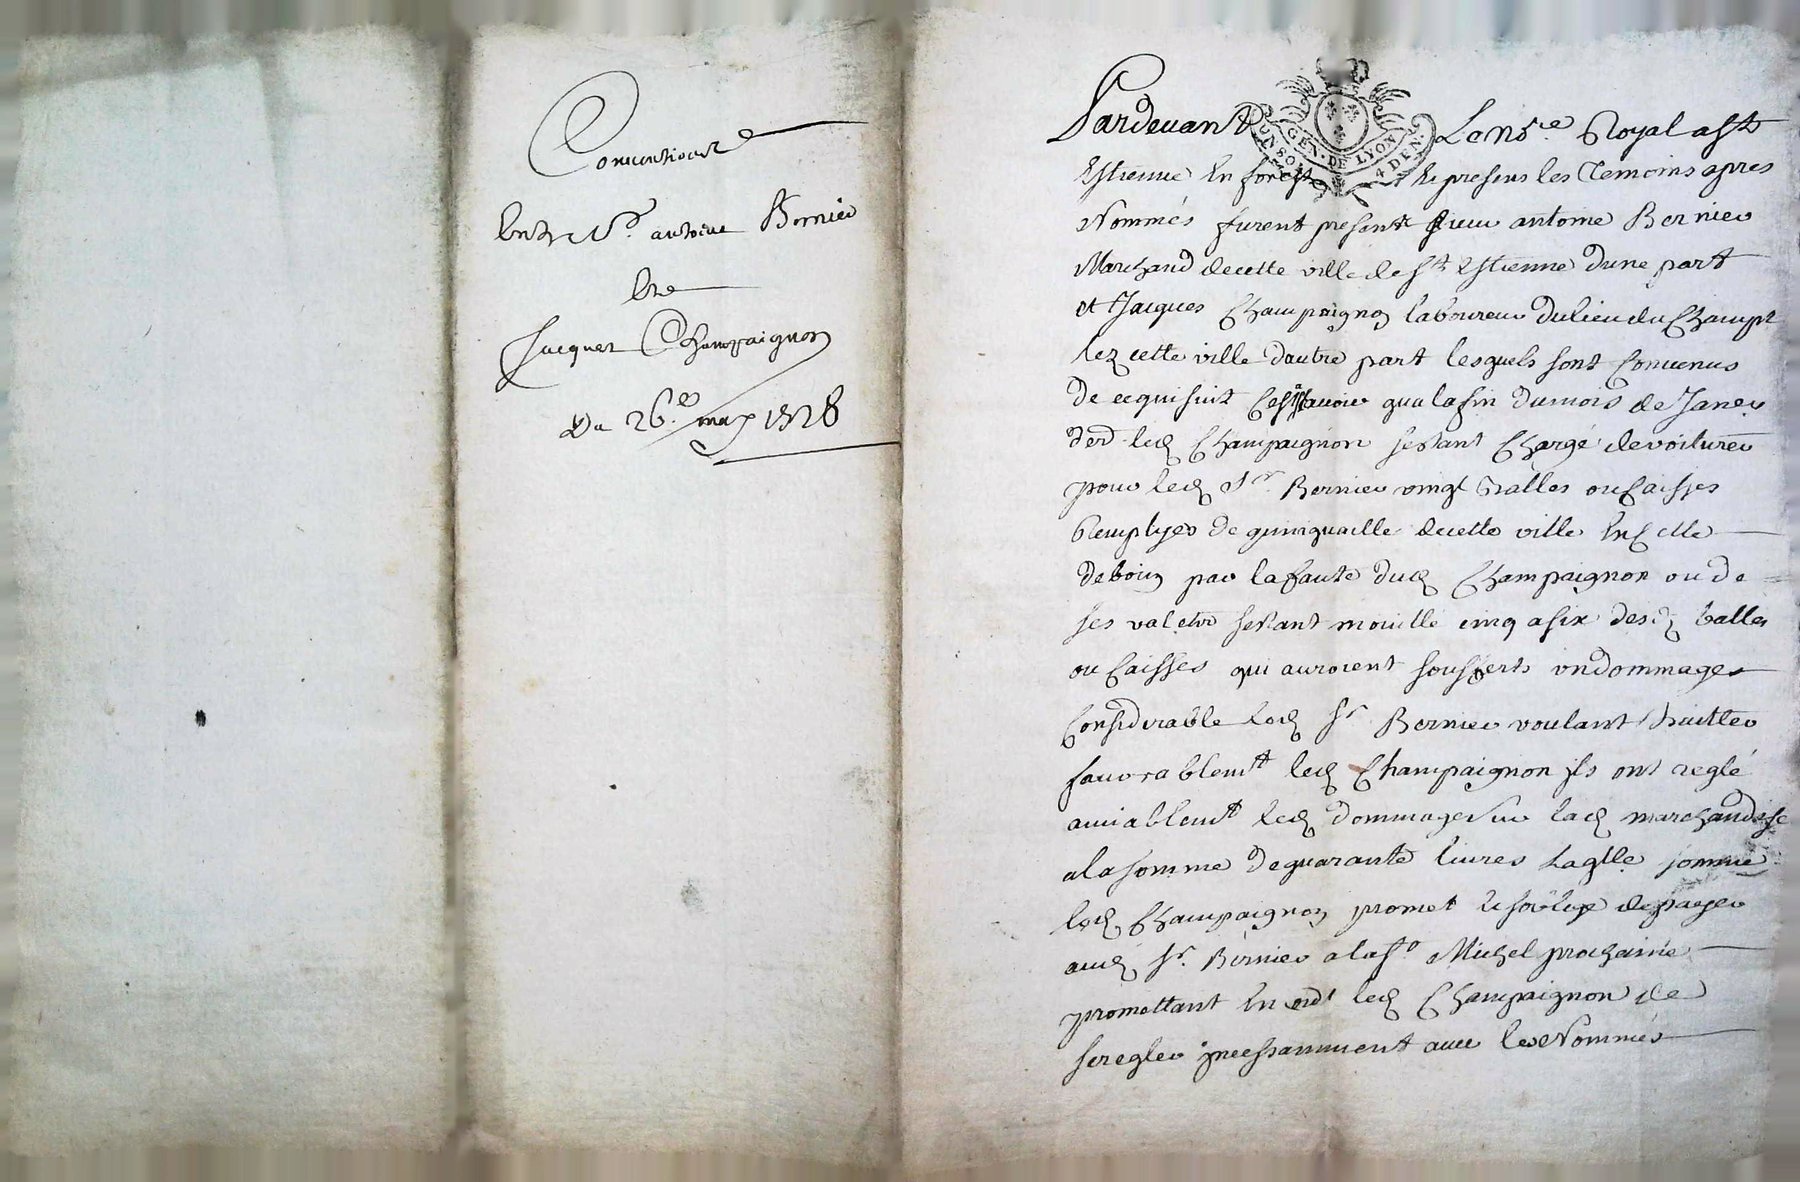 Conventions
Entre Sr. antoine Bernier
Et
Jacques Champaignon
Du 26e. may 1728
Pardevant Le nore Royal a St
GEN. DE LYON
4 DEN.
Estienne En forest Et presens les Temoins apres
Nommés furent presents sieur antoine Bernier
Marchand decette ville de St Estienne dune part
et Jacques Champaignon laboureur du lieu du Champt
lez cette ville dautre part lesquels sont Convenus
de cequisuit Cest assavoir qua la fin dumois de Janer
der led Champaignon sestant Chargé de voiturer
pour led Sr. Bernier vingt Balles ou Caisses
Remplyes de quinquaille decette ville En Celle
de par la faute dud Champaignon ou de
ses valets sestant mouille cinq a six desd balles
ou Caisses qui auroient souferts un dommage
Considerable led Sr Bernier voulant traitter
favorablemt led Champaignon ils ont reglé
amiablemt led dommage sur lad marchandise
a la somme de quarante livres Laqlle somme
led Champaignon promet et soblige de payer
aud Sr. Bernier a la St Michel prochaine
promettant En led Champaignon de
se regler incessamment avec les Nommés